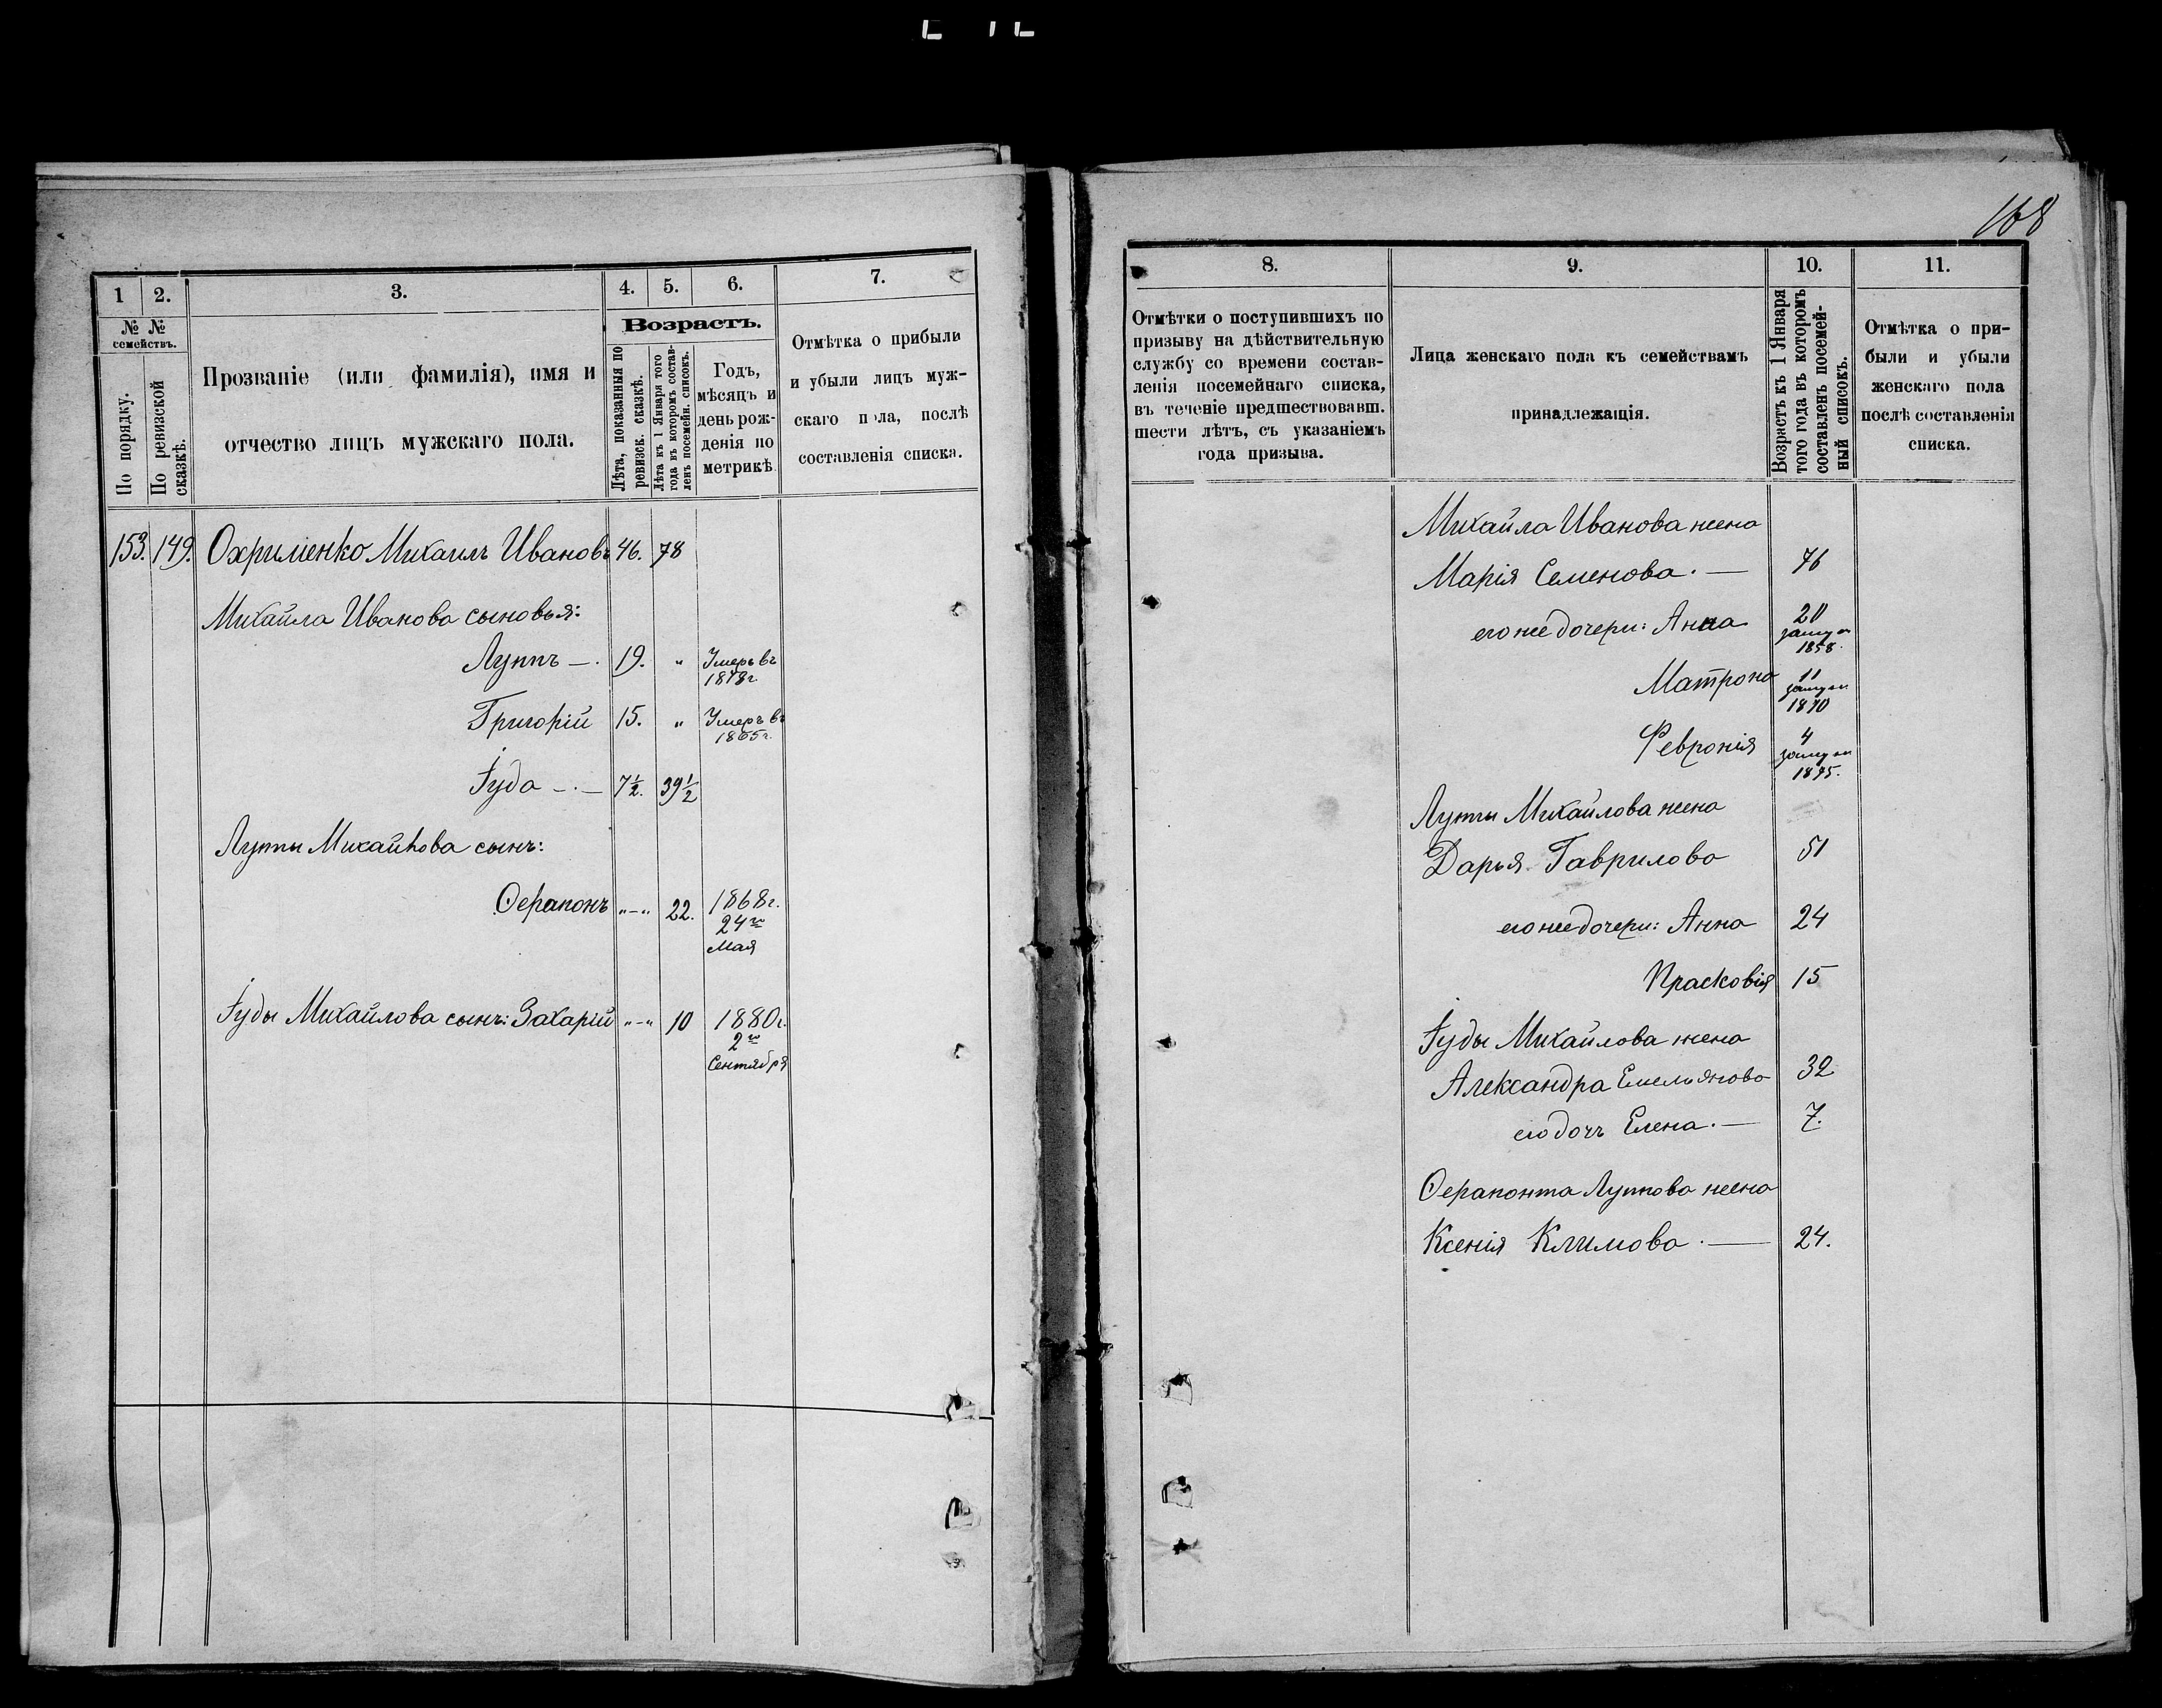 168
1 2. 3. 4. 5. 6. 7.
№ № семействъ.
По порядку.
По ревизской сказкѣ.
Прозваніе (или фамилія), имя и
отчество лицъ мужскаго пола.
Возрастъ.
Лѣта, показанныя по
ревизск. сказкѣ.
Лѣта къ 1 Января того
года въ которомъ состав-
ленъ посемейн. списокъ.
Годъ,
мѣсяцъ и
день рож-
денія по
метрикѣ
Отмѣтка о прибыли
и убыли лицъ муж-
скаго пола, послѣ
составленія списка.
153. 149. Охрименко Михаилъ Ивановъ 46. 78
Михайла Иванова сыновья:
Луппъ —. 19. „ Умеръ въ
1878 г.
Григорій 15. „ Умеръ въ
1865 г.
Іуда —.— 7½. 39½
Луппы Михайлова сынъ:
Ѳерапонъ „–„ 22. 1868 г.
24го
Мая
Іуды Михайлова сынъ: Захарій „–„ 10 1880 г.
2го
Сентября
8. 9. 10. 11.
Отмѣтки о поступившихъ по
призыву на дѣйствительную
службу со времени состав-
ленія посемейнаго списка,
въ теченіе предшествовавш.
шести лѣтъ, съ указаніемъ
года призыва.
Лица женскаго пола къ семействамъ
принадлежащія.
Возрастъ къ 1 Января
того года въ которомъ
составленъ посемей-
ный списокъ.
Отмѣтка о при-
были и убыли
женскаго пола
послѣ составленія
списка.
Михайла Иванова жена
Марія Семенова. — 76
его же дочери: Анна 20
замуж
1858.
Матрона 11
замуж
1870
Февронія 4
замуж
1875.
Луппы Михайлова жена
Дарья Гаврилова 51
его же дочери: Анна 24
Прасковія 15
Іуды Михайлова жена
Александра Емельянова 32
его дочь Елена. — 7.
Ѳерапонта Луппова жена
Ксенія Климова. — 24.